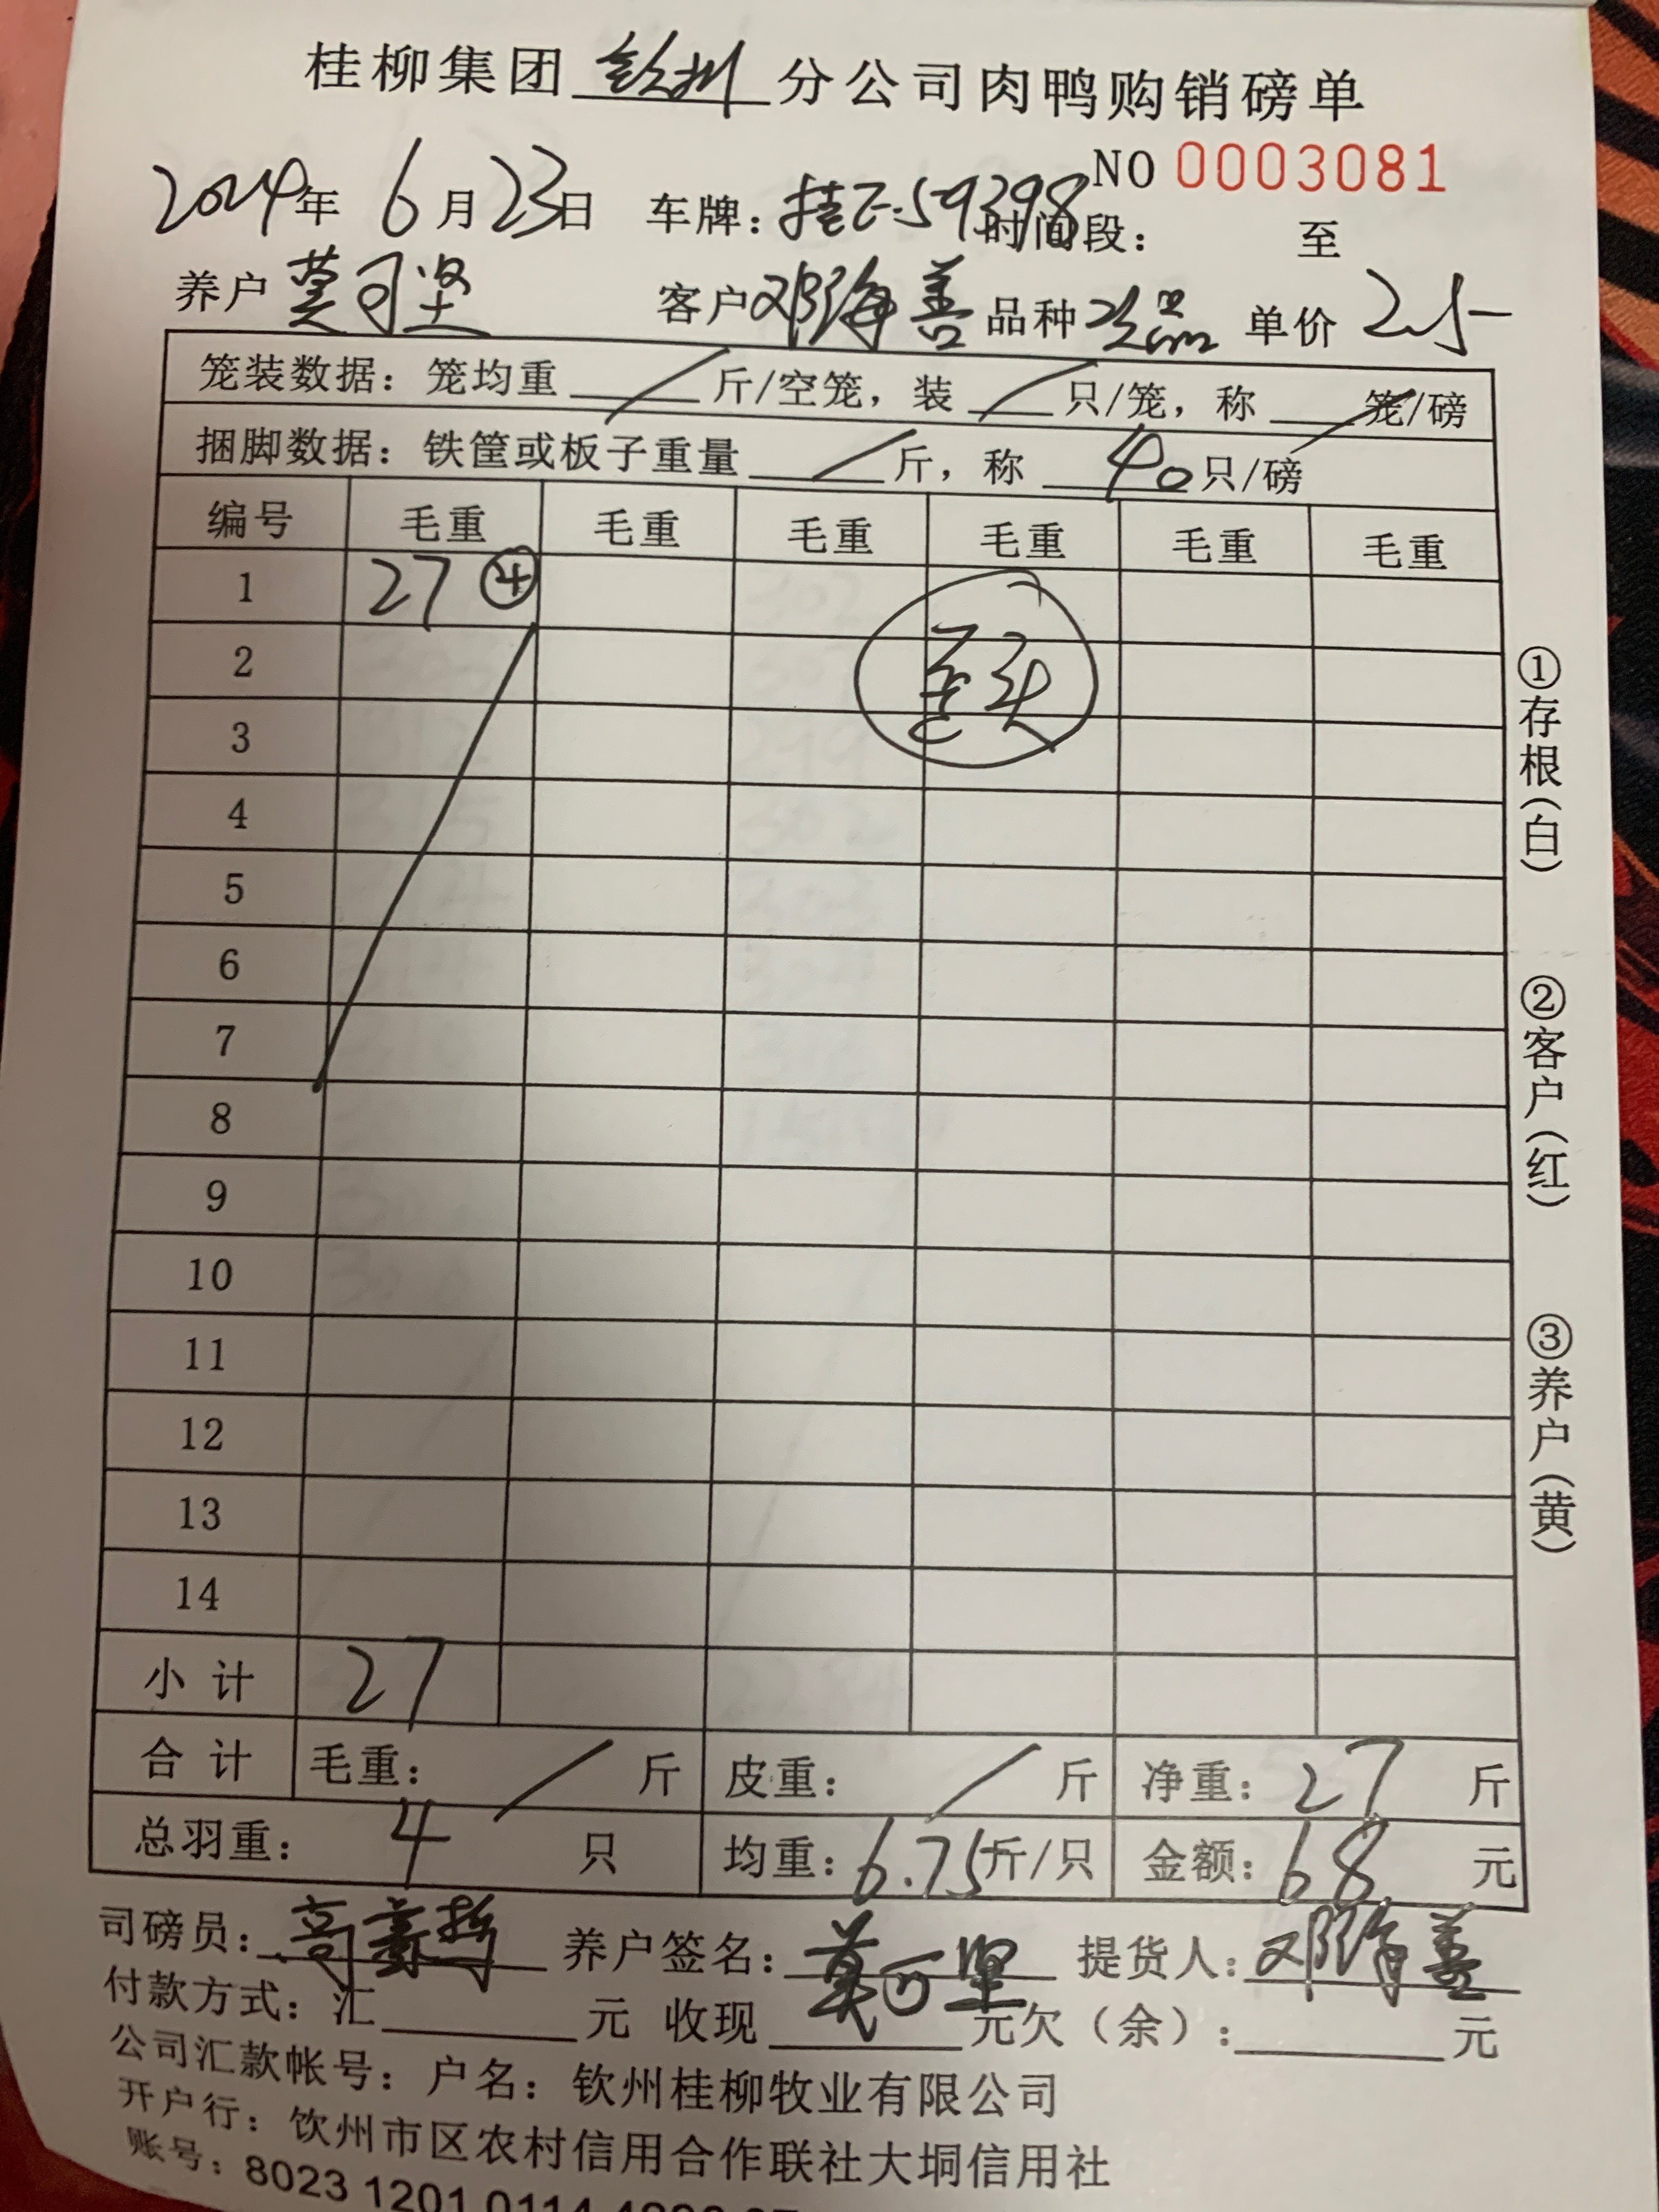 桂柳集团 钦州 分公司肉鸭购销磅单
NO 0003081
2024年 6月23日 车牌: 59398 时间段: 至
养户 莫可坚 客户 邓海善 品种 次品 单价 2.5
笼装数据: 笼均重 / 斤/空笼, 装 / 只/笼, 称 / 笼/磅
捆脚数据: 铁筐或板子重量 / 斤, 称 40 只/磅
编号 毛重 毛重 毛重 毛重 毛重 毛重
1 27 ④
2
3
4
5
6
7
8
9
10
11
12
13
14
小计 27
合计 毛重: / 斤 皮重: / 斤 净重: 27 斤
总羽重: 4 只 均重: 6.75 斤/只 金额: 68 元
①存根(白)
②客户(红)
③养户(黄)
司磅员: 养户签名: 莫可坚 提货人: 邓海善
付款方式: 汇 元 收现 元欠(余): 元
公司汇款帐号: 户名: 钦州桂柳牧业有限公司
开户行: 钦州市区农村信用合作联社大垌信用社
账号: 8023 1201 0114